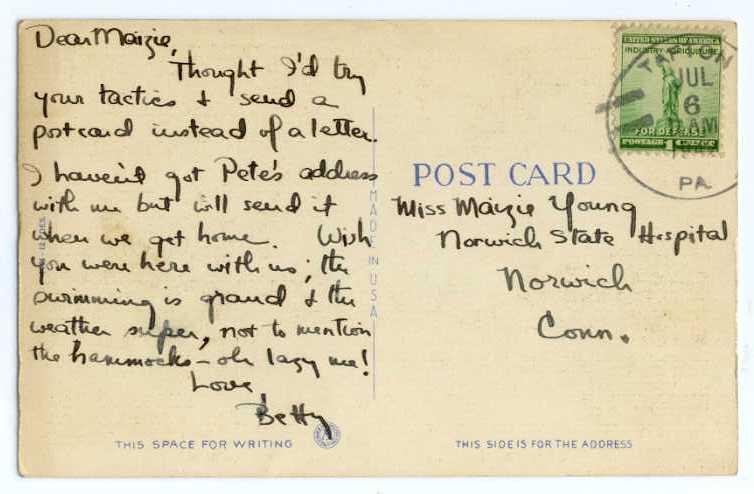 Dear Maizie,
Thought I'd try
your tactics & send a
postcard instead of a letter.
I haven't got Pete's address
with me but will send it
when we get home. Wish
you were here with us; the
swimming is grand & the
weather super, not to mention
the hammocks – oh lazy me!
Love
Betty
THIS SPACE FOR WRITING
MADE IN USA
UNITED STATES OF AMERICA
INDUSTRY AGRICULTURE
FOR DEFENSE
POSTAGE 1
TAFTON
JUL
6
AM
PA
POST CARD
Miss Maizie Young
Norwich State Hospital
Norwich
Conn.
THIS SIDE IS FOR THE ADDRESS